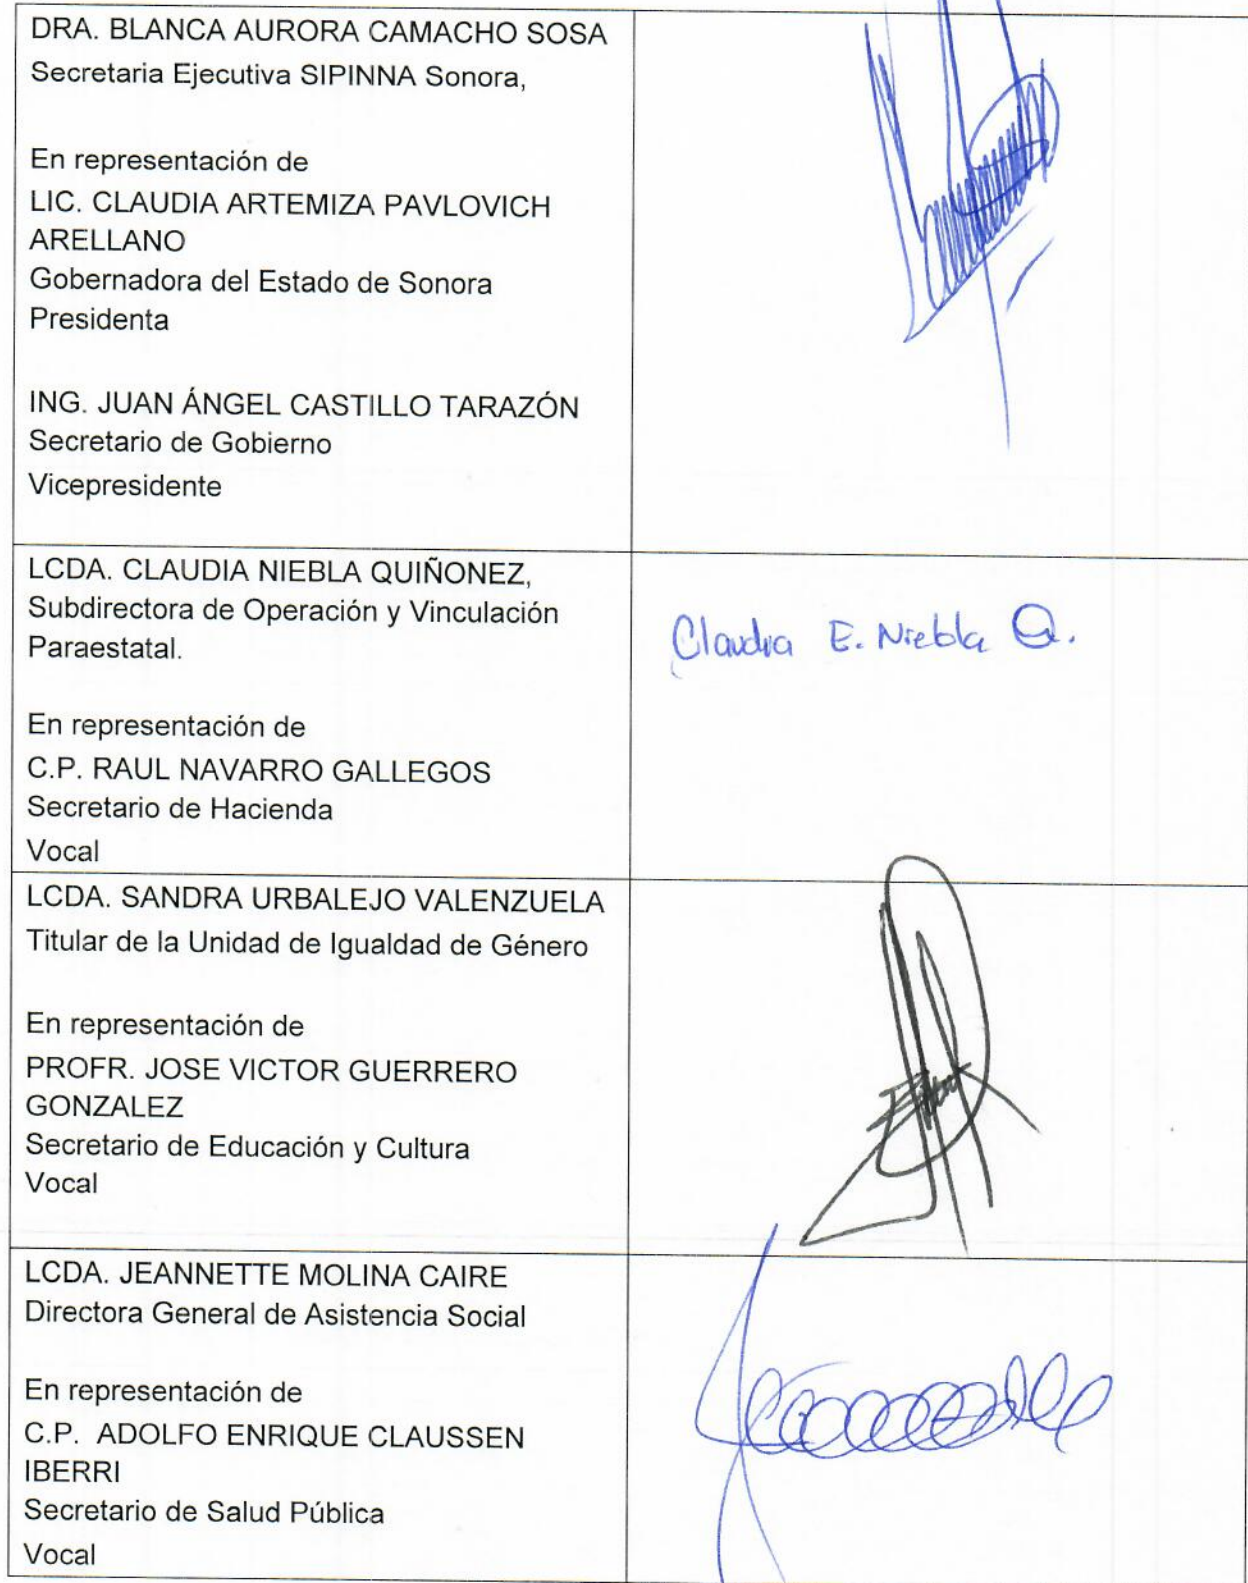 DRA. BLANCA AURORA CAMACHO SOSA
Secretaria Ejecutiva SIPINNA Sonora,
En representación de
LIC. CLAUDIA ARTEMIZA PAVLOVICH
ARELLANO
Gobernadora del Estado de Sonora
Presidenta
ING. JUAN ÁNGEL CASTILLO TARAZÓN
Secretario de Gobierno
Vicepresidente
LCDA. CLAUDIA NIEBLA QUIÑONEZ,
Subdirectora de Operación y Vinculación
Paraestatal.
Claudia E. Niebla Q.
En representación de
C.P. RAUL NAVARRO GALLEGOS
Secretario de Hacienda
Vocal
LCDA. SANDRA URBALEJO VALENZUELA
Titular de la Unidad de Igualdad de Género
En representación de
PROFR. JOSE VICTOR GUERRERO
GONZALEZ
Secretario de Educación y Cultura
Vocal
LCDA. JEANNETTE MOLINA CAIRE
Directora General de Asistencia Social
En representación de
C.P.  ADOLFO ENRIQUE CLAUSSEN
IBERRI
Secretario de Salud Pública
Vocal